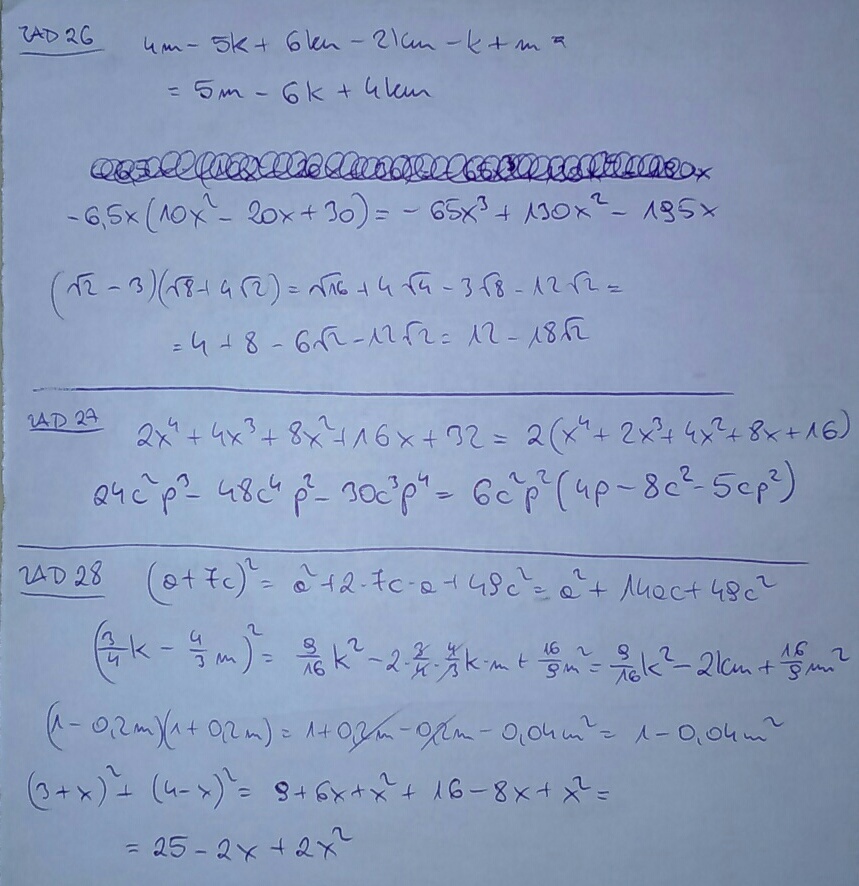 ZAD 26 4m - 5k + 6km - 2km - k + m =
= 5m - 6k + 4km
-6,5x(10x² - 20x + 30) = -65x³ + 130x² - 195x
(√2 - 3)(√8 + 4√2) = √16 + 4√4 - 3√8 - 12√2 =
= 4 + 8 - 6√2 - 12√2 = 12 - 18√2
ZAD 27 2x⁴ + 4x³ + 8x² + 16x + 32 = 2(x⁴ + 2x³ + 4x² + 8x + 16)
24c²p³ - 48c⁴p² - 30c³p⁴ = 6c²p²(4p - 8c² - 5cp²)
ZAD 28 (a + 7c)² = a² + 2·7c·a + 49c² = a² + 14ac + 49c²
(3/4 k - 4/3 m)² = 9/16 k² - 2·3/4·4/3 k·m + 16/9 m² = 9/16 k² - 2km + 16/9 m²
(1 - 0,2m)(1 + 0,2m) = 1 + 0,2m - 0,2m - 0,04m² = 1 - 0,04m²
(3 + x)² + (4 - x)² = 9 + 6x + x² + 16 - 8x + x² =
= 25 - 2x + 2x²